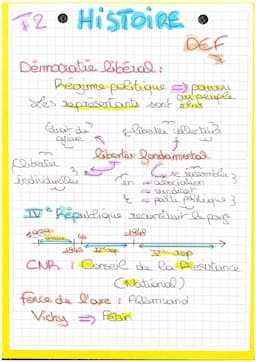 T2 HiSTOiRE
DEF
Démocratie libéral :
Régime politique ⇒ pouvoir
au peuple
Les représentants sont élus
Droit de
grève
{ libertés collectives
{ libertés
individuelles
libertés fondamentales
se rassembler }
en = association
= syndicat
= partis politique }
IVe République reconstruit le pays
1946
CNR : Conseil de la Résistance
(National)
force de l'axe : Allemand
Vichy ⇒ Pétain